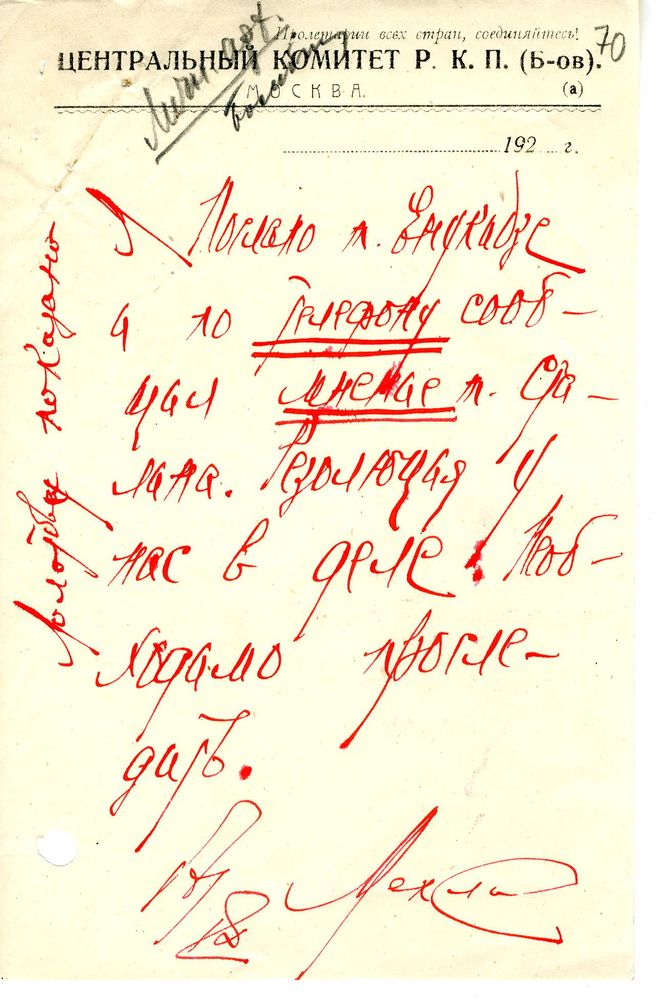 Пролетарии всех стран, соединяйтесь!
70
ЦЕНТРАЛЬНЫЙ КОМИТЕТ Р. К. П. (Б-ов).
МОСКВА.
(а)
192 г.
Послано т. Енукидзе
и по телефону сооб-
щил мнение т. Ста-
лина. Резолюция у
нас в деле. Необ-
ходимо просле-
дить.
Мехлис
показано